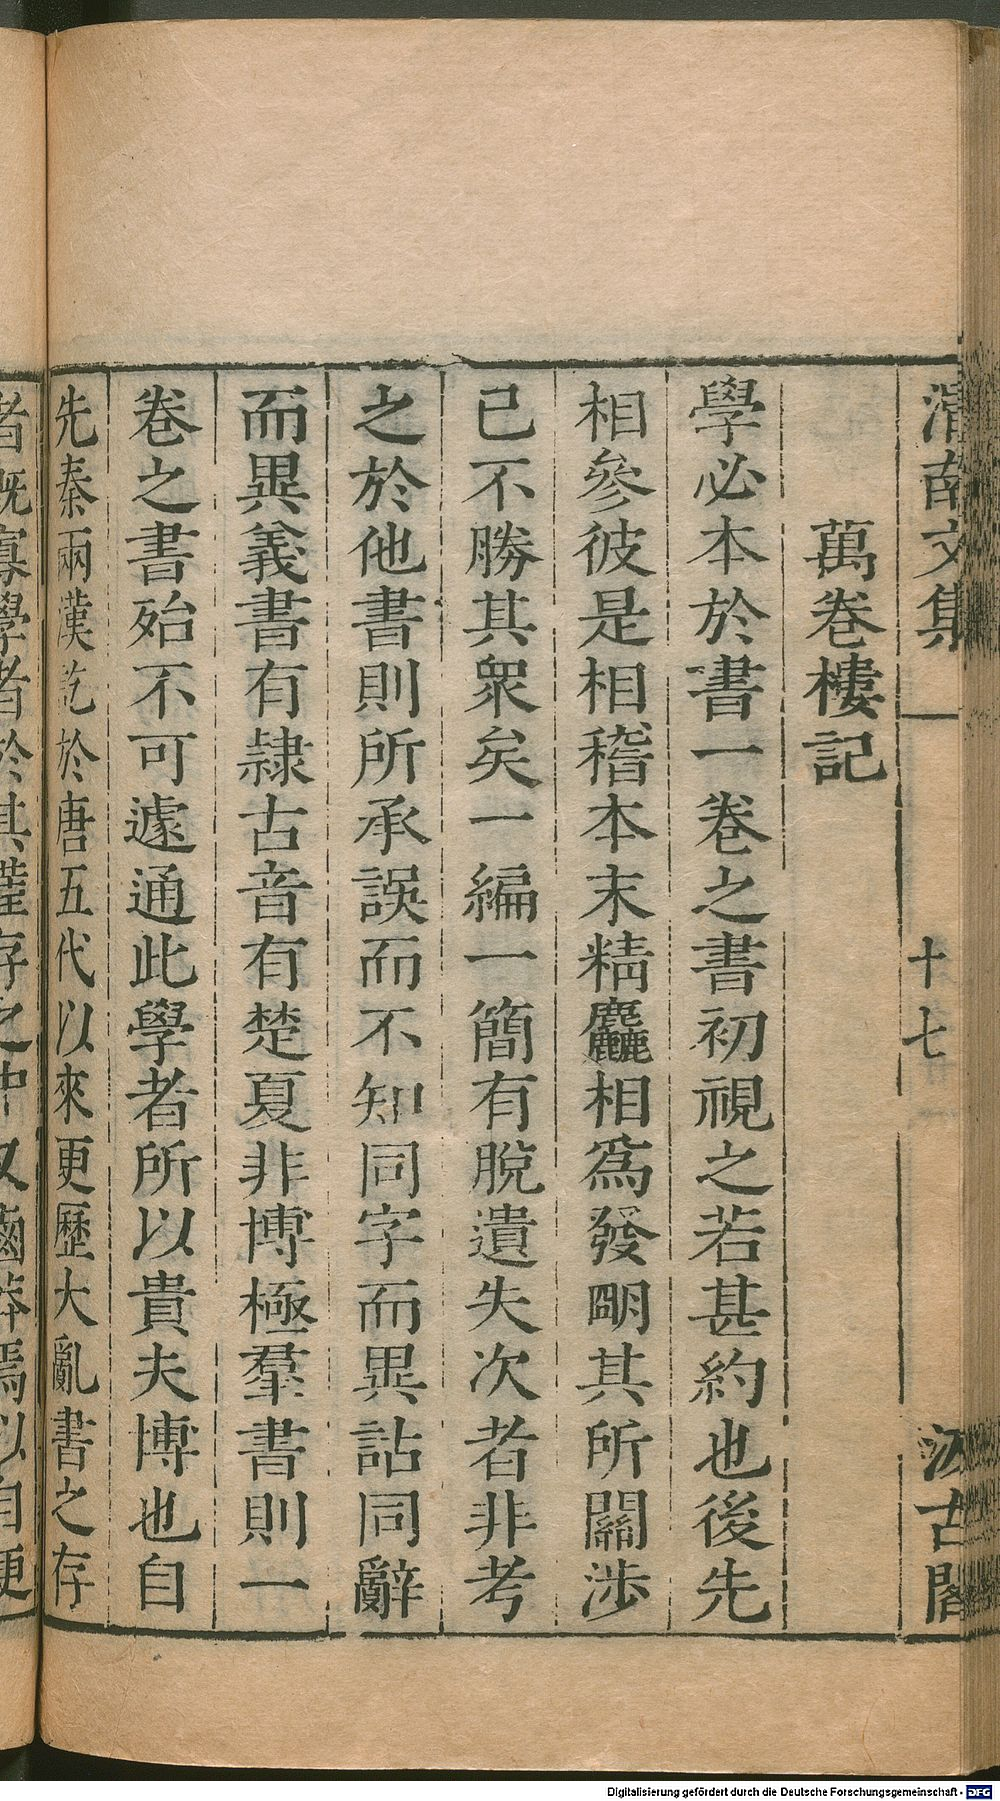 渭南文集 十七 汲古閣
萬卷樓記
學必本於書一卷之書初視之若甚約也後先
相參彼是相稽本末精麤相爲發朙其所關涉
已不勝其衆矣一編一簡有脫遺失次者非考
之於他書則所承誤而不知同字而異詁同辭
而異義書有隷古音有楚夏非博極羣書則一
卷之書殆不可遽通此學者所以貴夫博也自
先秦兩漢訖於唐五代以來更歷大亂書之存
者既寡學者於其僅存之中又鹵莽焉以自便
Digitalisierung gefördert durch die Deutsche Forschungsgemeinschaft - DFG